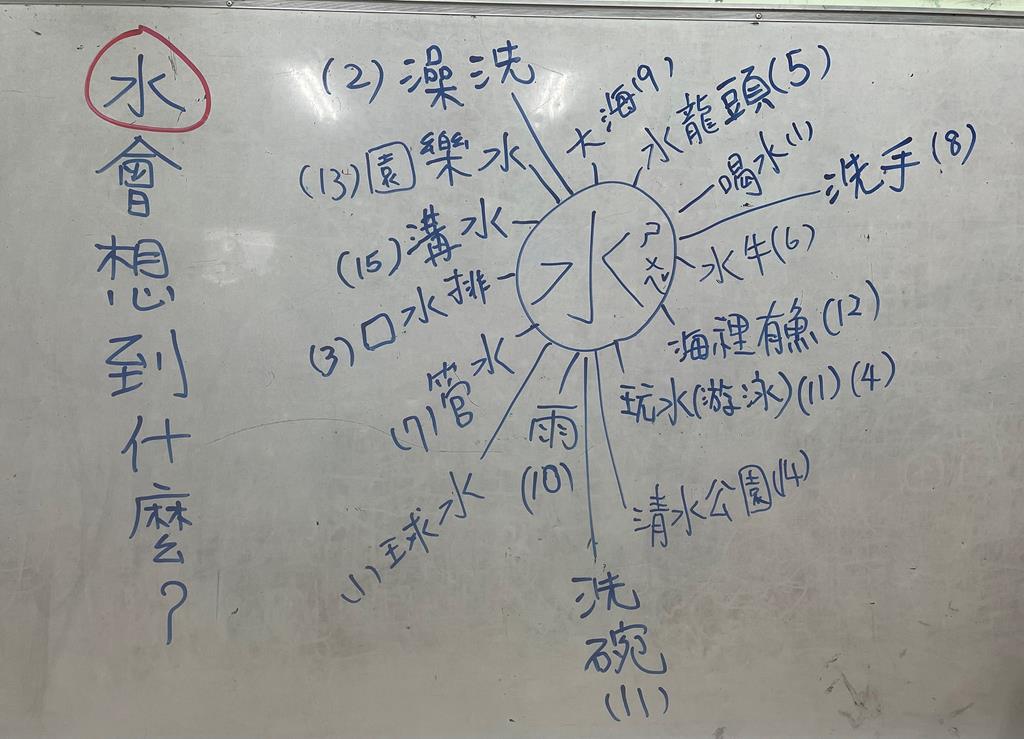 水會想到什麼?
水ㄕㄨㄟˇ
大海(9)
水龍頭(5)
喝水(1)
洗手(8)
水牛(6)
海裡有魚(12)
玩水(游泳)(11)(4)
清水公園(14)
洗碗(11)
雨(10)
水球(1)
水管(7)
排水口(3)
水溝(15)
水樂園(13)
洗澡(2)